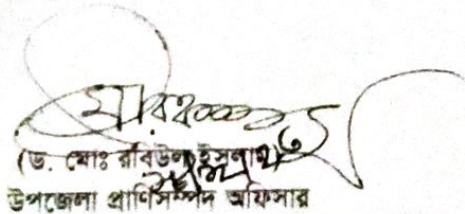 (ড. মোঃ রবিউল ইসলাম)
উপজেলা প্রাণিসম্পদ অফিসার